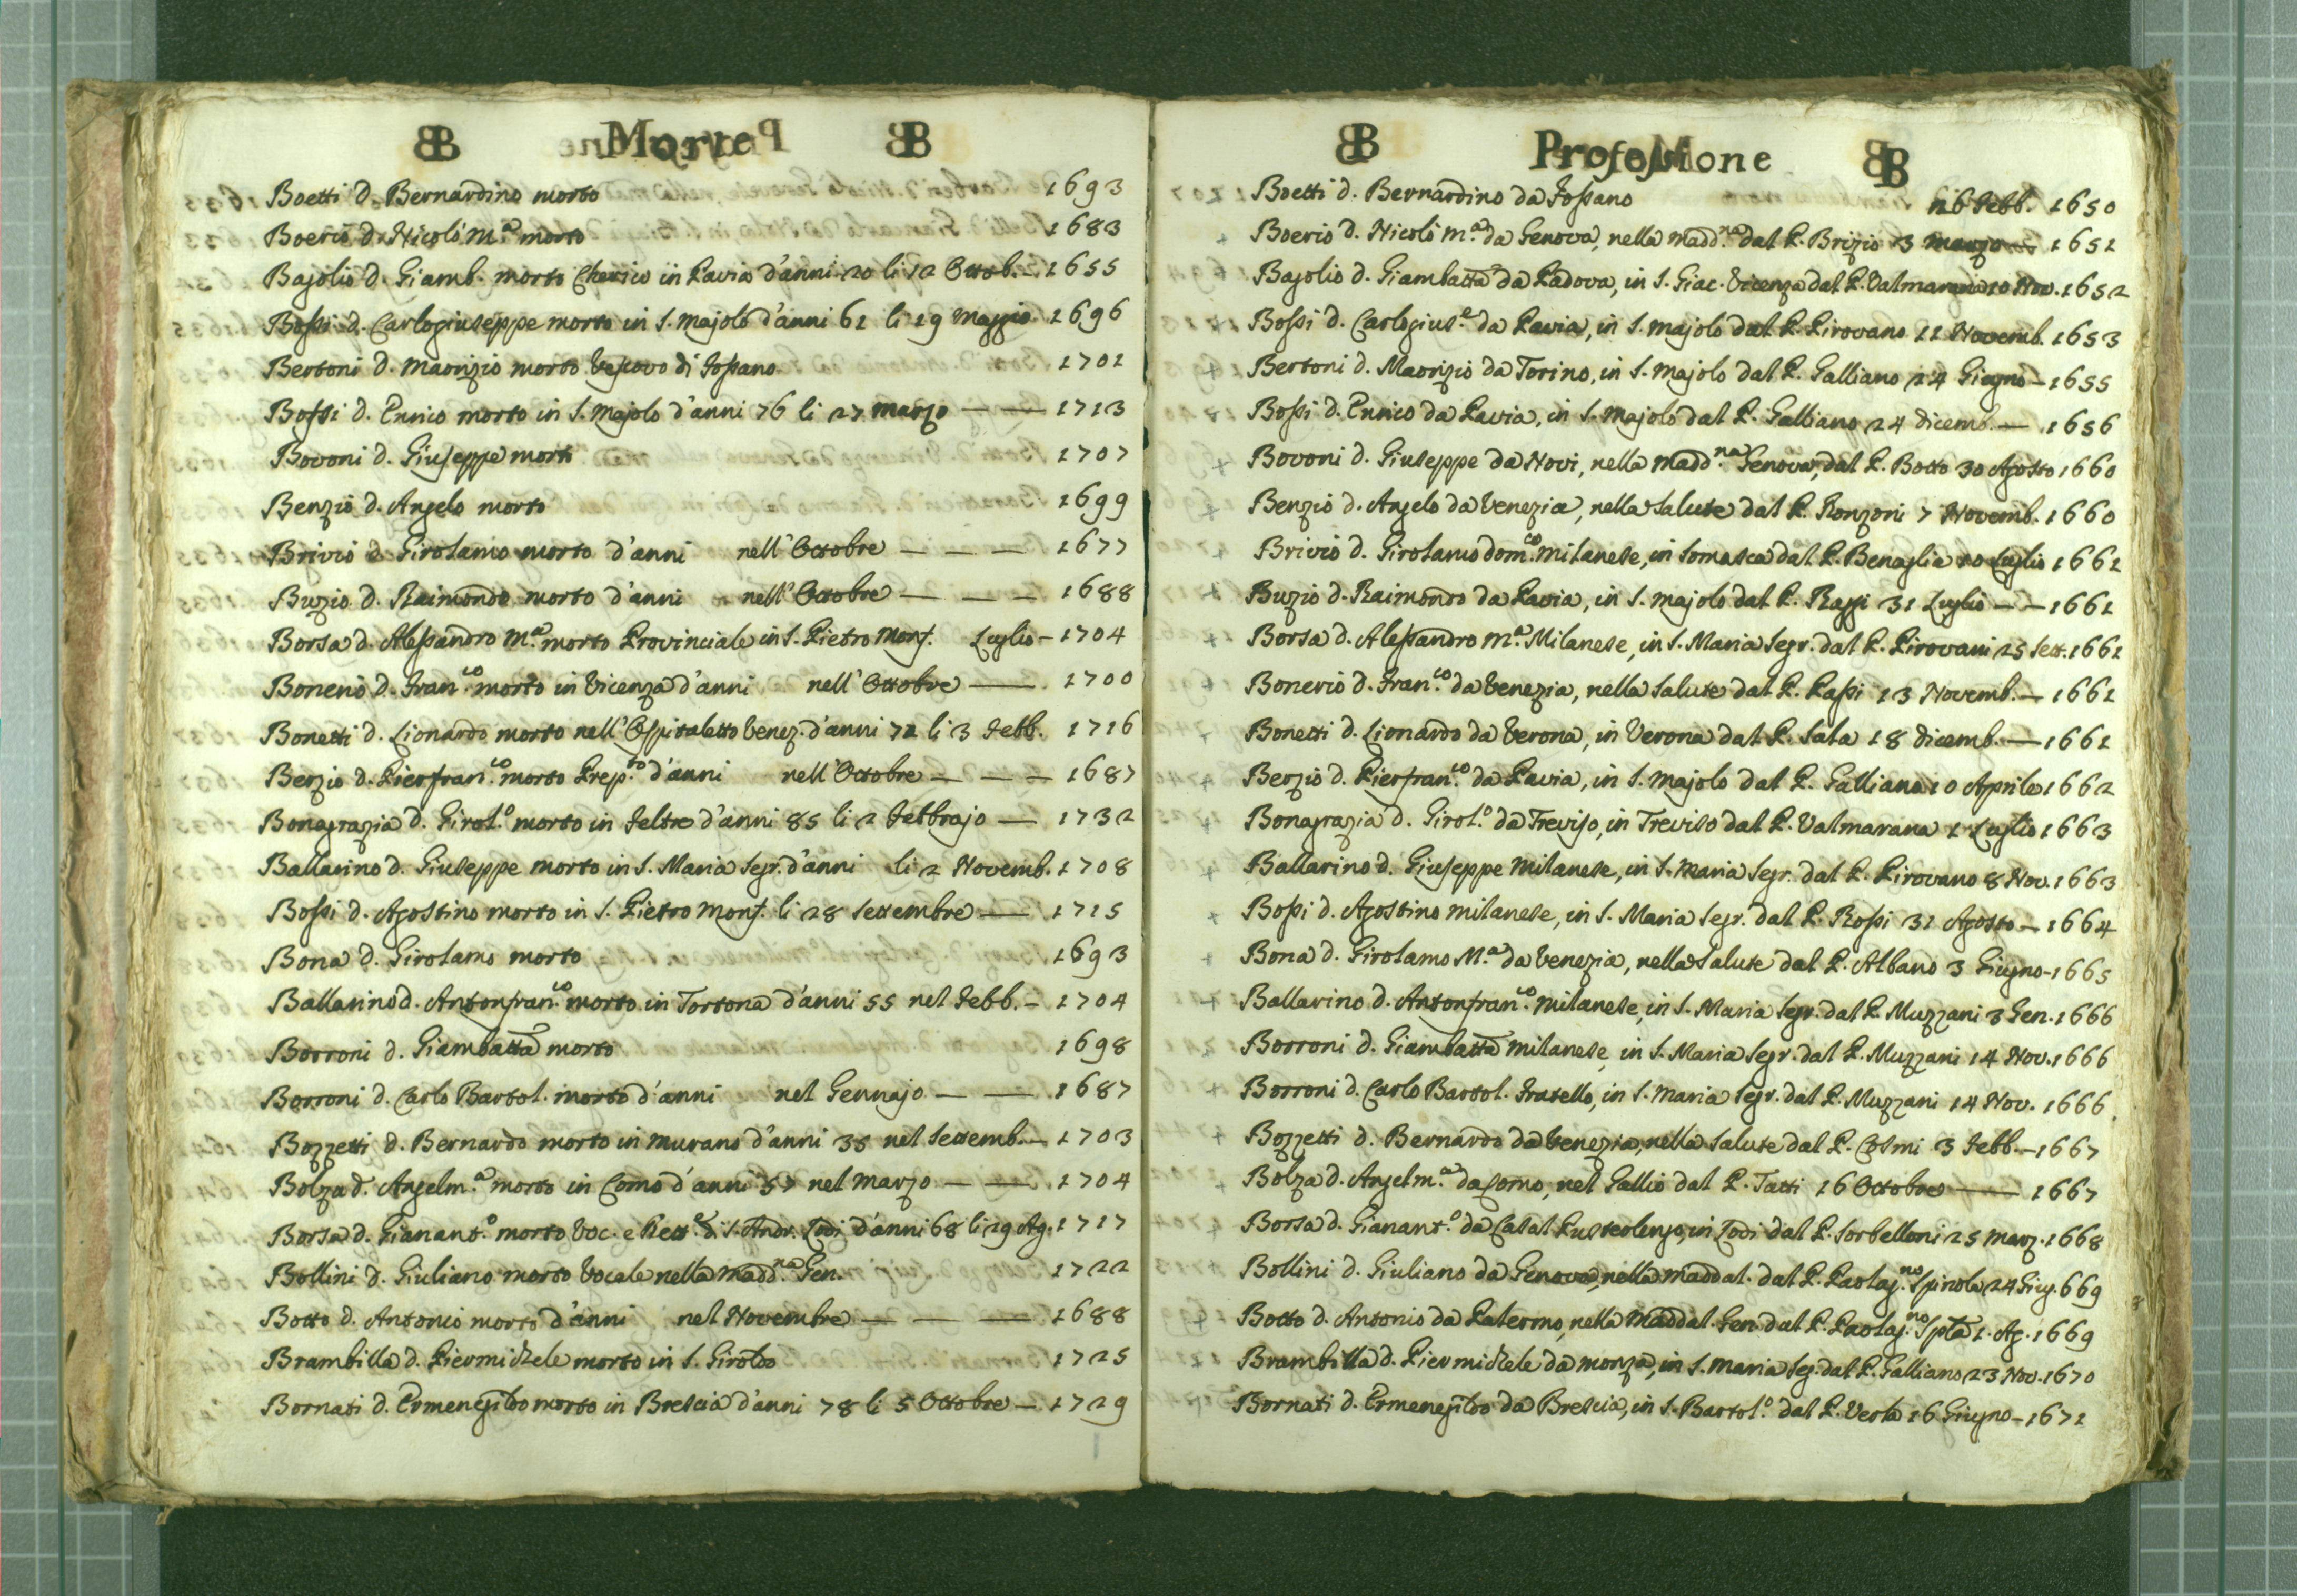 B Morte B
Boetti d. Bernardino morto 1693
Boerio d. Nicolò M.ª morto 1683
Bajolio d. Giamb. morto Cherico in Pavia d'anni 20 li 12 Ottob. — 1655
Bossi d. Carlogiuseppe morto in S. Majolo d'anni 61 li 19 Maggio 1696
Bertoni d. Maorizio morto Vescovo di Fossano 1701
Bossi d. Ennio morto in S. Majolo d'anni 76 li 27 marzo — — 1713
Bovoni d. Giuseppe morto 1707
Benzio d. Angelo morto 1699
Brivio d. Girolamo morto d'anni nell'Ottobre — — — 1677
Buzio d. Raimondo morto d'anni nell'Ottobre — — — 1688
Borsa d. Alessandro M.ª morto Provinciale in S. Pietro Monf. Luglio — 1704
Bonerio d. Fran.co morto in Vicenza d'anni nell'Ottobre — 1700
Bonetti d. Lionardo morto nell'Ospitaletto Venez. d'anni 72 li 3 Febb. 1716
Berzio d. Pierfran.co morto Prep.to d'anni nell'Ottobre — — — 1687
Bonagrazia d. Girol.º morto in Feltre d'anni 85 li 2 Febbrajo — 1732
Ballarino d. Giuseppe morto in S. Maria Segr. d'anni li 2 Novemb. 1708
Bossi d. Agostino morto in S. Pietro Monf. li 28 Settembre — 1715
Bona d. Girolamo morto 1693
Ballarino d. Antonfran.co morto in Tortona d'anni 55 nel Febb. — 1704
Borroni d. Giambatta morto 1698
Borroni d. Carlo Bartol. morto d'anni nel Gennajo — — 1687
Bozzetti d. Bernardo morto in Murano d'anni 35 nel Settemb. — 1703
Bolza d. Angelm.ª morto in Como d'anni 57 nel Marzo — — 1704
Borsa d. Gianant.º morto Voc. e Rett.e di S. Andr. Lodi d'anni 68 li 29 Ag. 1717
Bollini d. Giuliano morto Vocale nella Madd.na Gen. 1722
Botto d. Antonio morto d'anni nel Novembre — — — 1688
Brambilla d. Piermichele morto in S. Giroldo 1725
Bornati d. Ermenegildo morto in Brescia d'anni 78 li 5 Ottobre — 1729
B Professione B
Boetti d. Bernardino da Fossano 26 Febb. 1650
Boerio d. Nicolò M.ª da Genova, nella Madd.na dal P. Brizio 3 marzo — 1651
Bajolio d. Giambatta da Padova, in S. Giac. Vicenza dal P. Valmarana 10 Nov. 1652
Bossi d. Carlogius.e da Pavia, in S. Majolo dal P. Pirovano 11 Novemb. 1653
Bertoni d. Maorizio da Torino, in S. Majolo dal P. Galliano 24 Giugno — 1655
Bossi d. Ennio da Pavia, in S. Majolo dal P. Galliano 24 dicemb. — 1656
Bovoni d. Giuseppe da Novi, nella Madd.na Genova, dal P. Botto 30 Agosto 1660
Benzio d. Angelo da Venezia, nella Salute dal P. Ronzoni 7 Novemb. 1660
Brivio d. Girolamo dom.co milanese, in Somasca dal P. Benaglia 10 Luglio 1661
Buzio d. Raimondo da Pavia, in S. Majolo dal P. Raggi 31 Luglio — — 1661
Borsa d. Alessandro M.ª Milanese, in S. Maria Segr. dal P. Pirovani 25 Sett. 1661
Bonerio d. Fran.co da Venezia, nella Salute dal P. Passi 13 Novemb. — 1661
Bonetti d. Lionardo da Verona, in Verona dal P. Sala 18 dicemb. — 1661
Berzio d. Pierfran.co da Pavia, in S. Majolo dal P. Galliano 10 Aprile 1662
Bonagrazia d. Girol.º da Treviso, in Treviso dal P. Valmarana 1 Luglio 1663
Ballarino d. Giuseppe Milanese, in S. Maria Segr. dal P. Pirovano 8 Nov. 1663
Bossi d. Agostino milanese, in S. Maria Segr. dal P. Rossi 31 Agosto — 1664
Bona d. Girolamo M.ª da Venezia, nella Salute dal P. Albano 3 Giugno — 1665
Ballarino d. Antonfran.co milanese, in S. Maria Segr. dal P. Muzzani 3 Gen. 1666
Borroni d. Giambatta milanese, in S. Maria Segr. dal P. Muzzani 14 Nov. 1666
Borroni d. Carlo Bartol. Fratello, in S. Maria Segr. dal P. Muzzani 14 Nov. 1666
Bozzetti d. Bernardo da Venezia, nella Salute dal P. Cosmi 3 Febb. — 1667
Bolza d. Angelm.ª da Como, nel Gallio dal P. Tatti 16 Ottobre — 1667
Borsa d. Gianant.º da Casal Pusterlengo, in Lodi dal P. Sorbelloni 25 Marz. 1668
Bollini d. Giuliano da Genova, nella Maddal. dal P. Paolag.no Spinola 24 Giug. 669
Botto d. Antonio da Palermo, nella Maddal. Gen. dal P. Paolag.no Spla 1. Ag. 1669
Brambilla d. Piermichele da Monza, in S. Maria Seg. dal P. Galliano 23 Nov. 1670
Bornati d. Ermenegildo da Brescia, in S. Bartol.º dal P. Verta 16 Giugno — 1671